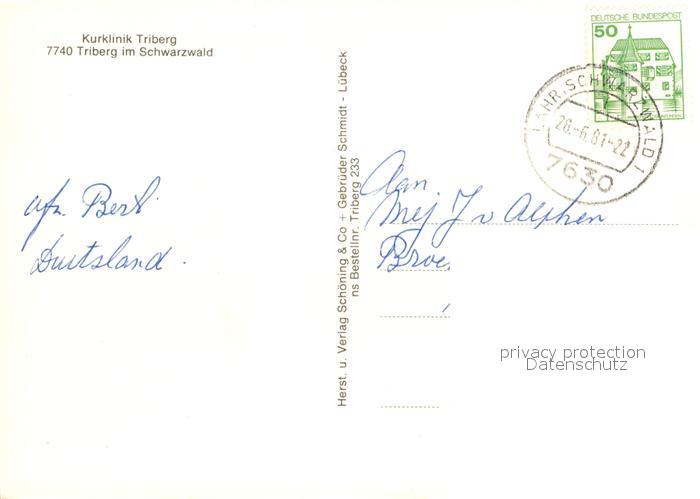 Kurklinik Triberg
7740 Triberg im Schwarzwald
afz. Bert
Duitsland.
Herst. u. Verlag Schöning & Co + Gebrüder Schmidt - Lübeck
ns Bestellnr. Triberg 233
DEUTSCHE BUNDESPOST
50
LAHR, SCHWARZWALD 1
28.-6.81-22
7630
Aan.
Mej J v Alphen
privacy protection
Datenschutz